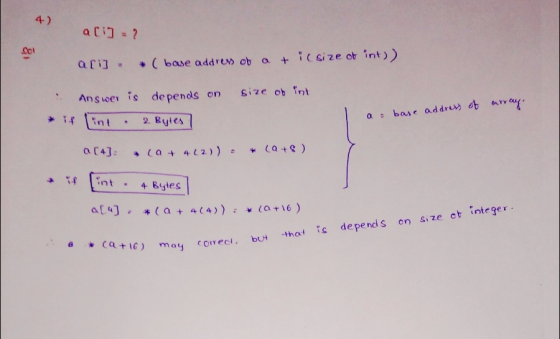 4) a[i] = ?
Sol
a[i] = * ( base address of a + i (size of int))
∴ Answer is depends on size of int
* if int = 2 Bytes
a = base address of array.
a[4] = * (a + 4(2)) = * (a+8)
* if int = 4 Bytes
a[4] = * (a + 4(4)) = * (a+16)
∴ * (a+16) may correct. but that is depends on size of integer.